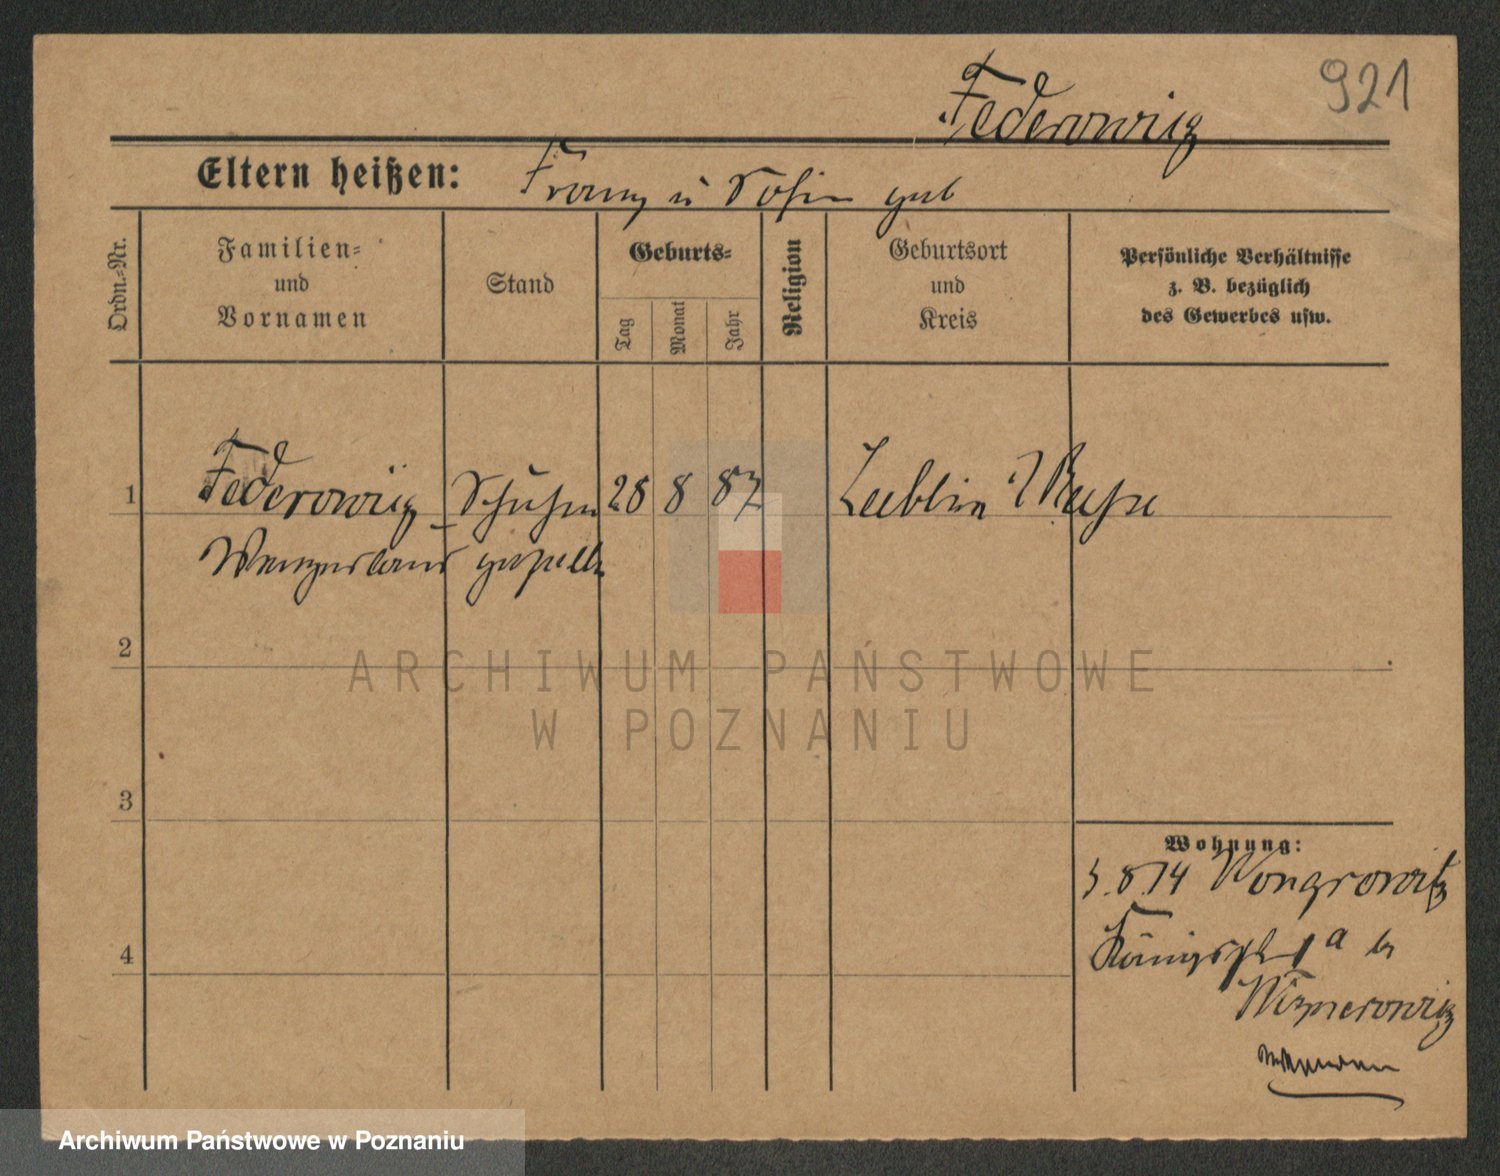 921
Federowicz
Eltern heißen: Franz u Sofia geb
Ordn.-Nr.
Familien- und Vornamen
Stand
Geburts-
Tag
Monat
Jahr
Religion
Geburtsort und Kreis
Persönliche Verhältnisse z. B. bezüglich des Gewerbes usw.
1 Federowicz 28 8 87 Lublin
2
3
4
Wohnung:
3.8.14 Wongrowitz
1 a
ARCHIWUM PAŃSTWOWE
W POZNANIU
Archiwum Państwowe w Poznaniu